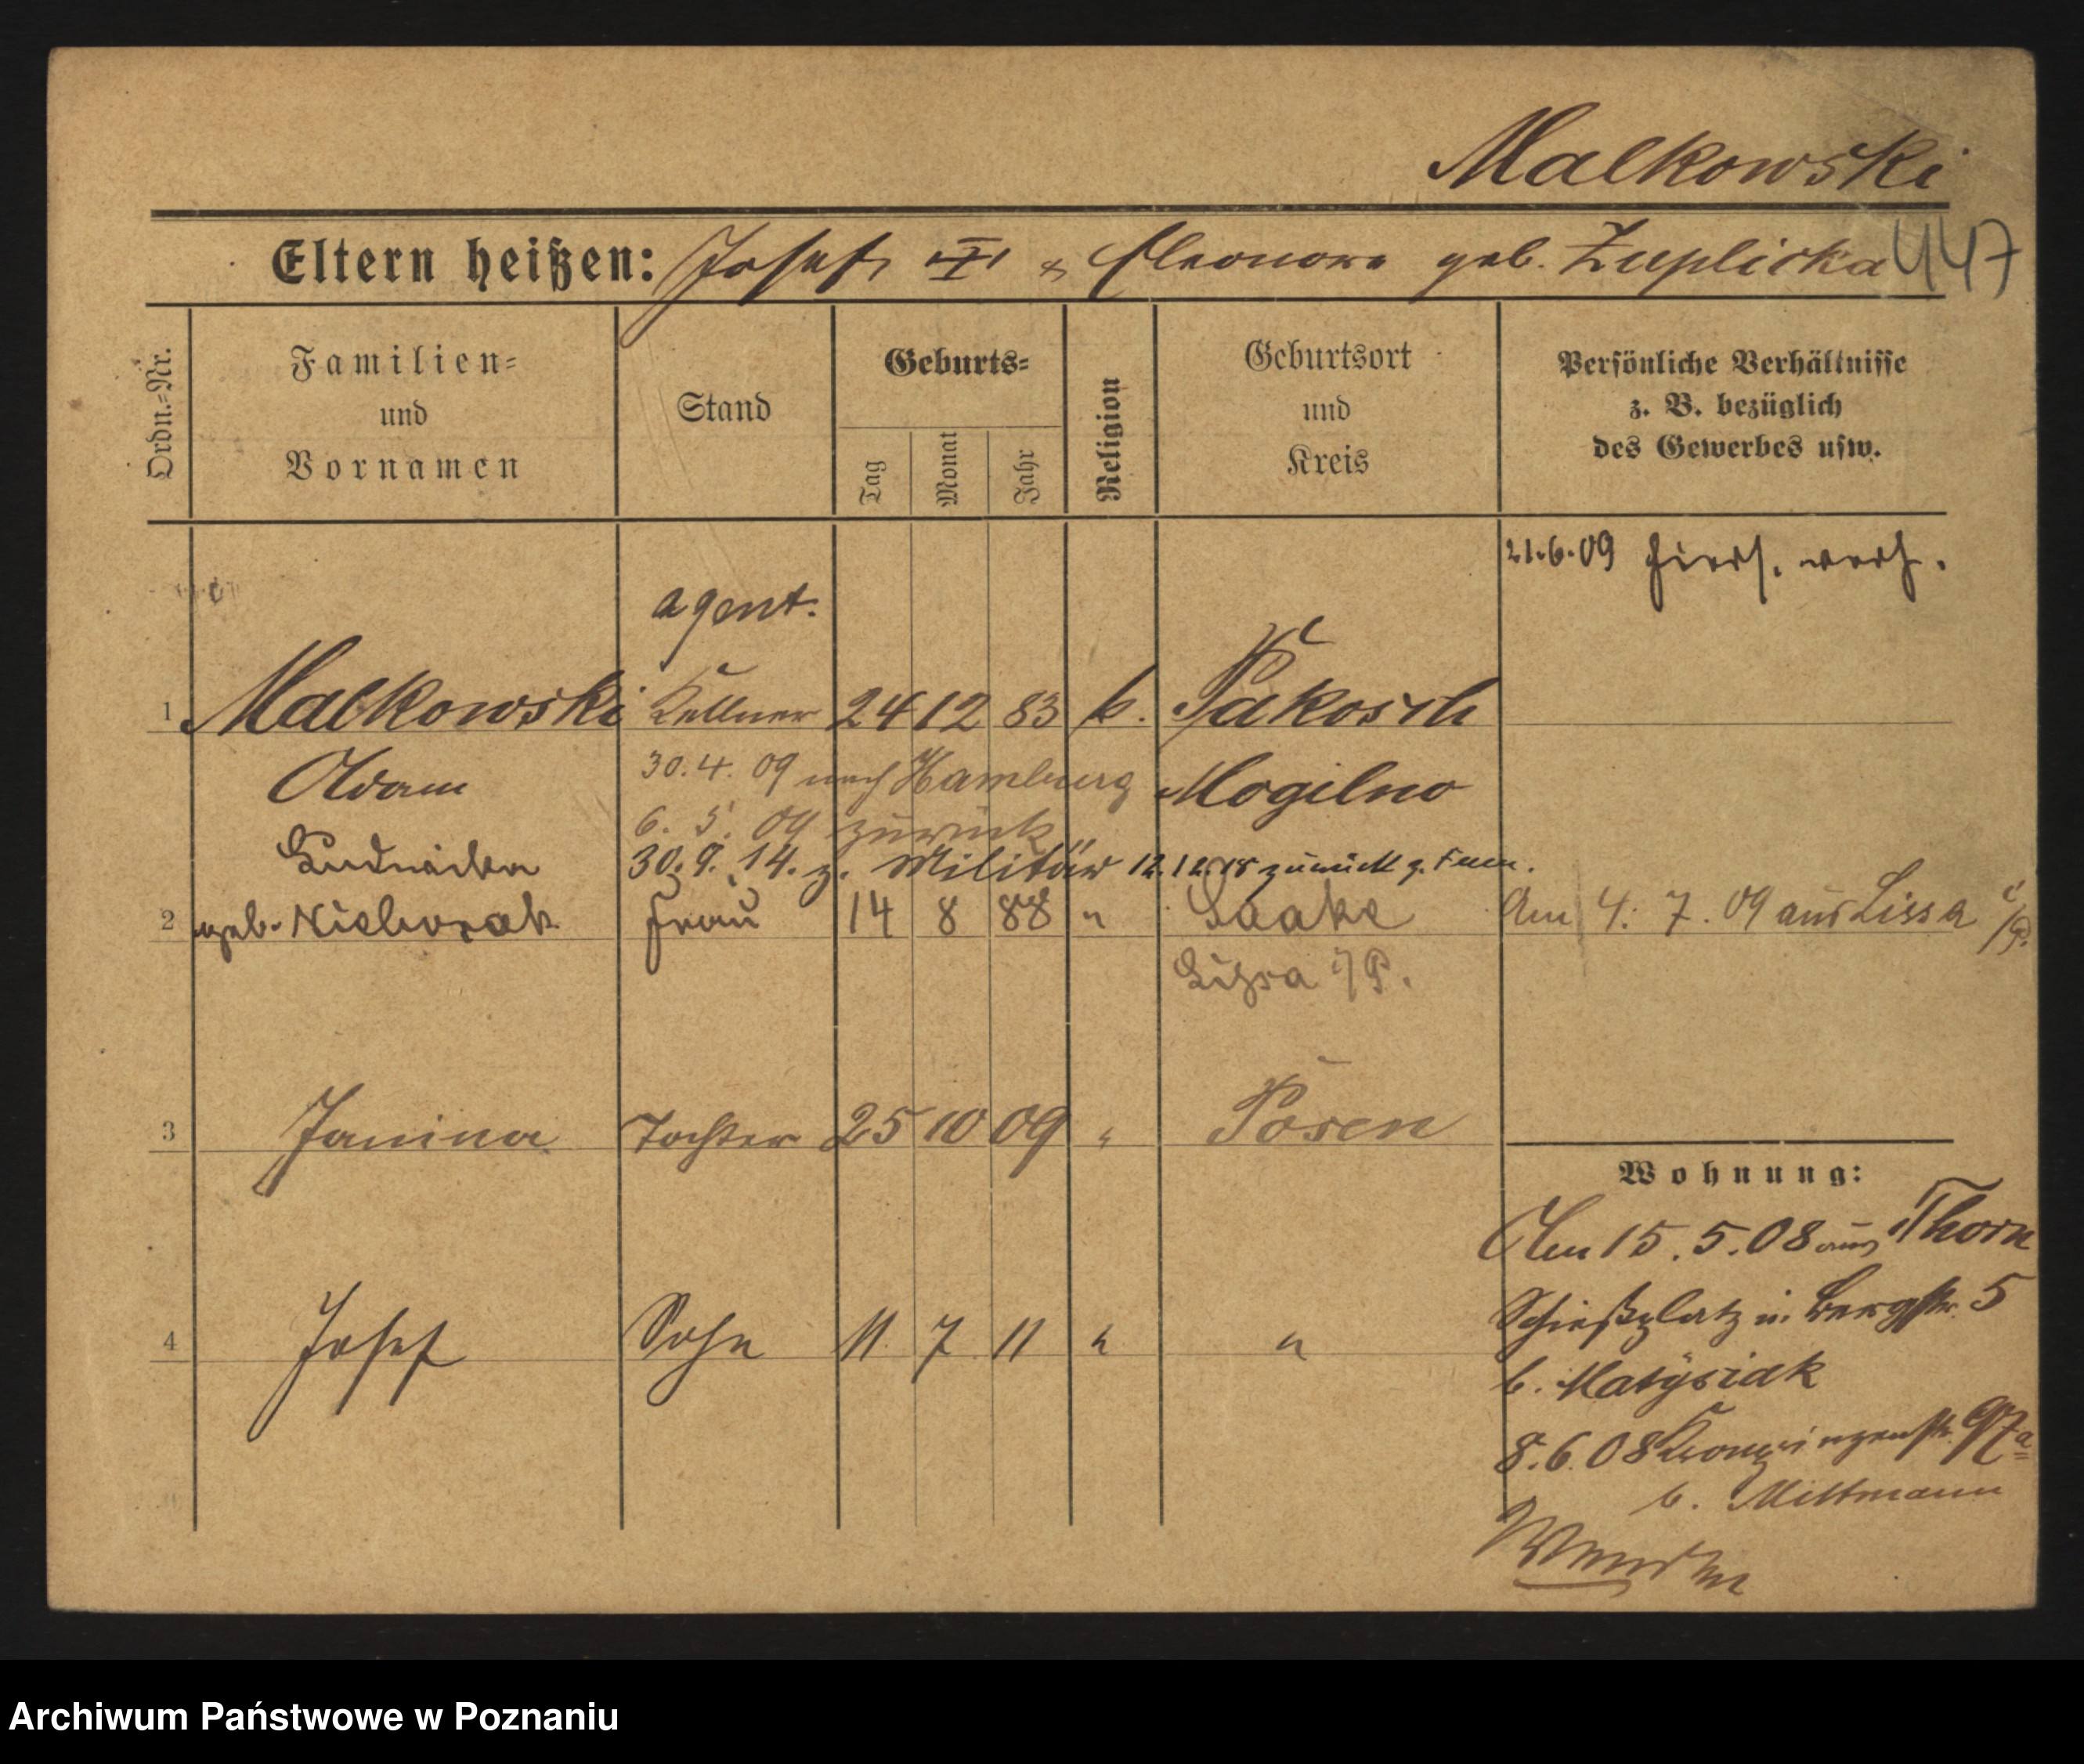 Malkowski
Eltern heißen: Josef u. Eleonora geb. Zuplicka 447
Ordn.-Nr.
Familien=
und
Vornamen
Stand
Geburts=
Tag
Monat
Jahr
Religion
Geburtsort
und
Kreis
Persönliche Verhältnisse
z. B. bezüglich
des Gewerbes usw.
21.6.09 hiers. verh.
agent.
1 Malkowski Kellner 24 12 83 k. Pakosch
Adam 30.4.09 nach Hamburg Mogilno
6. 5. 09 zurück
Ludwika 30.9.14. z. Militär 12.12.18 zurück z. Fam.
2 geb. Frau 14 8 88 " Laake Am 4. 7. 09 aus Lissa i/P.
Lissa i/P.
3 Janina Tochter 25 10 09 " Posen
Wohnung:
Am 15. 5. 08 aus Thorn
Schießplatz n. Bergstr. 5
4 Josef Sohn 11 7 11 " "
b. Matysiak
8.6.08 Kronprinzenstr. 97a
b. Mittmann